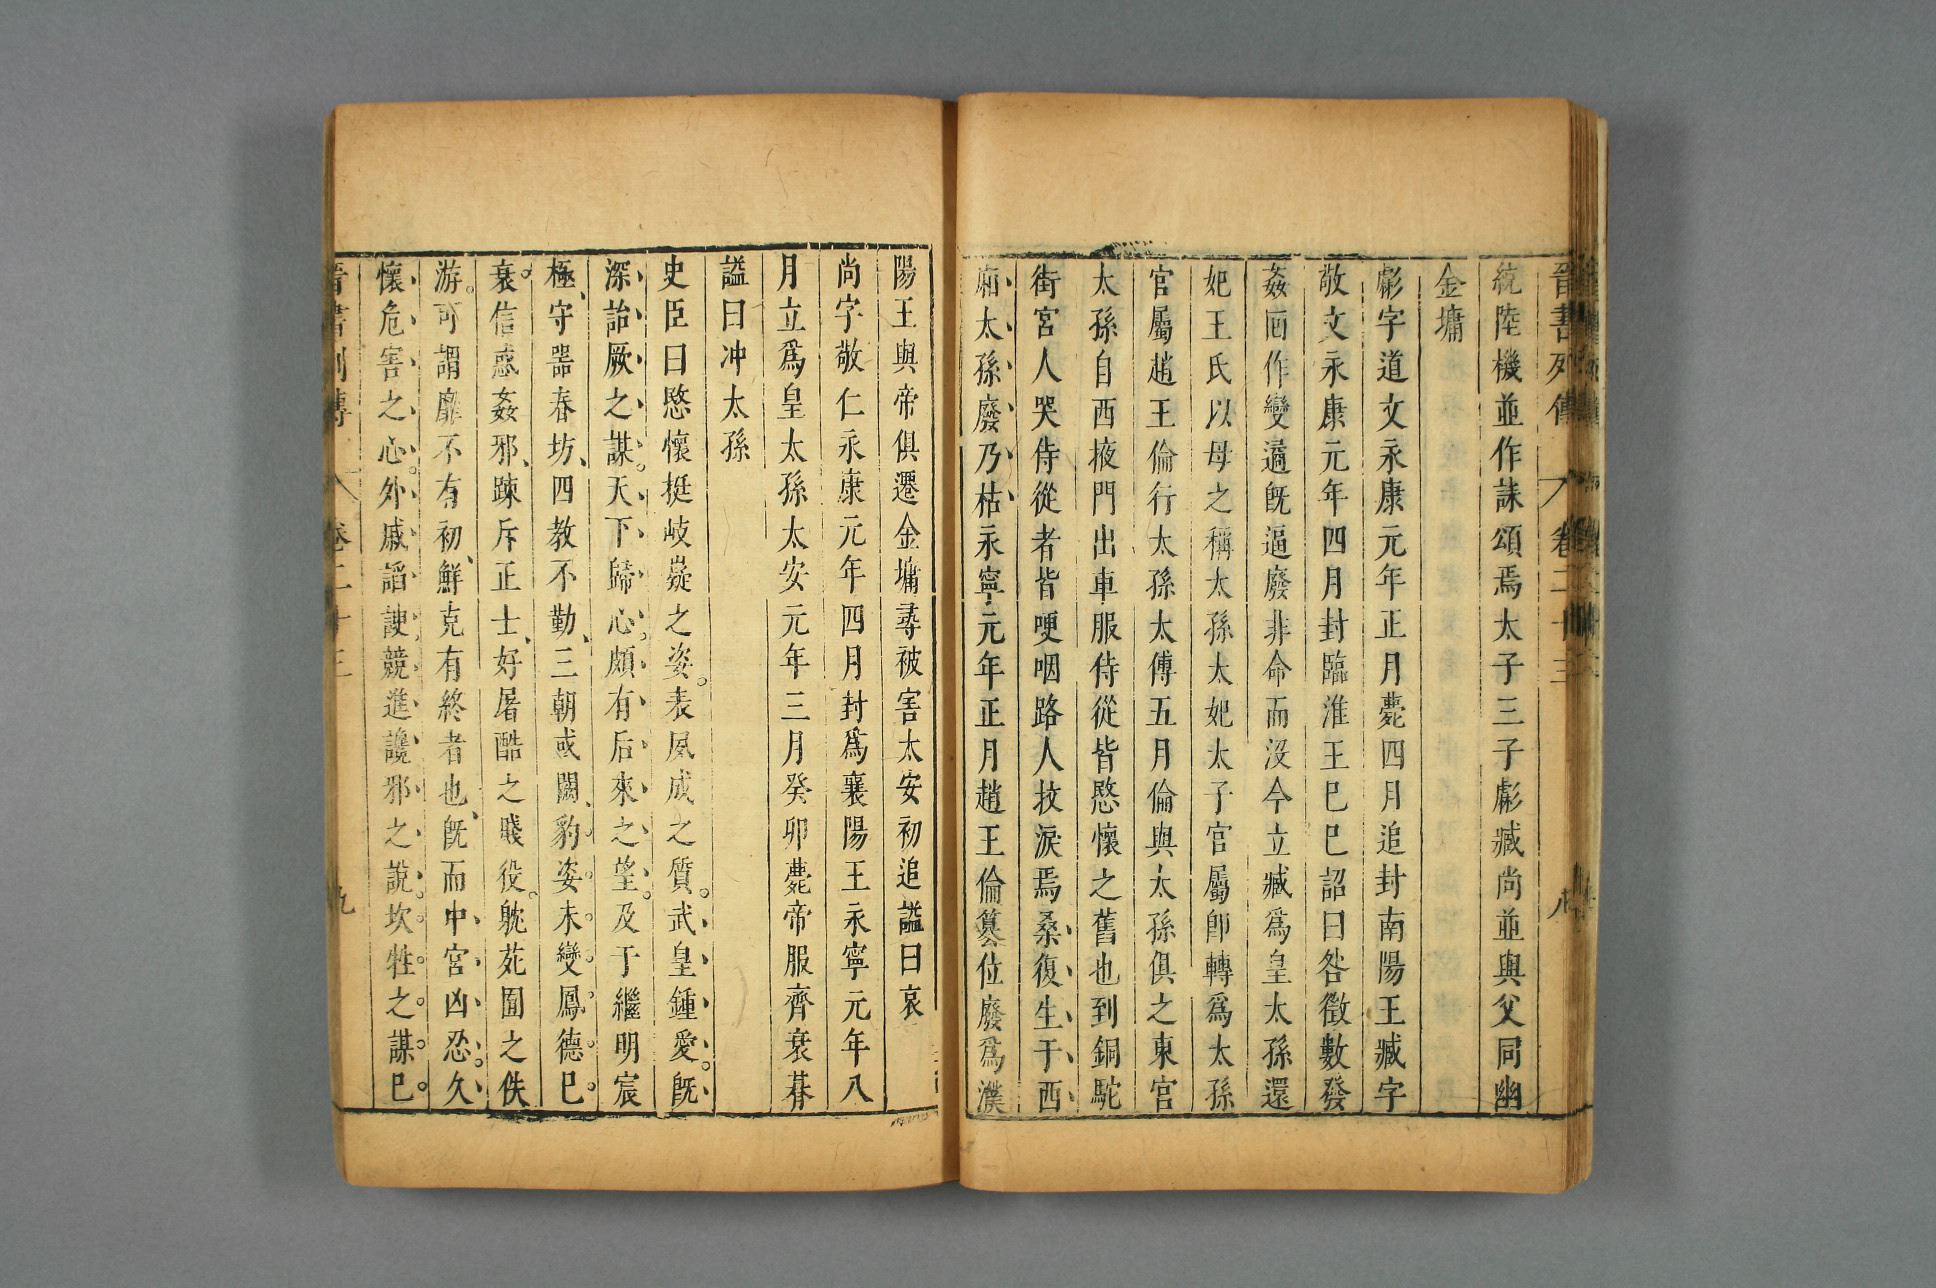 晉書列傳 卷二十三 八
統陸機並作誄頌焉太子三子虨臧尚並與父同幽
金墉
虨字道文永康元年正月薨四月追封南陽王臧字
敬文永康元年四月封臨淮王巳巳詔曰咎徵數發
姦回作變遹旣逼廢非命而沒今立臧爲皇太孫還
妃王氏以母之稱太孫太妃太子官屬卽轉爲太孫
官屬趙王倫行太孫太傅五月倫與太孫俱之東宮
太孫自西掖門出車服侍從皆愍懷之舊也到銅駝
街宮人哭侍從者皆哽咽路人抆淚焉桑復生于西
廂太孫廢乃枯永寧元年正月趙王倫篡位廢爲濮
陽王與帝俱遷金墉尋被害太安初追謚曰哀
尚字敬仁永康元年四月封爲襄陽王永寧元年八
月立爲皇太孫太安元年三月癸卯薨帝服齊衰朞
謚曰冲太孫
史臣曰愍懷挺岐嶷之姿。表夙成之質。武皇鍾愛。旣
深詒厥之謀。天下歸心。頗有后來之望。及于繼明宸
極、守器春坊、四教不勤、三朝或闕、豹姿未變鳳德巳
衰。信惑姦邪、疎斥正士、好屠酷之賤役。躭苑囿之佚
游。可謂靡不有初、鮮克有終者也、旣而中宮凶忍。久
懷危害之心。外戚諂諛競進讒邪之說。坎牲之謀。巳
晉書列傳 卷二十三 九